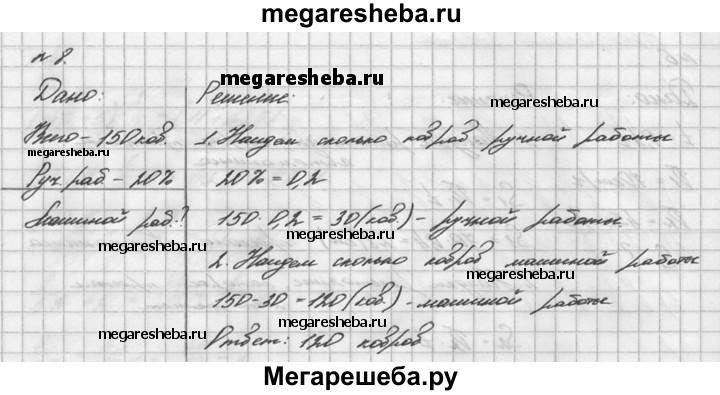 megaresheba.ru
№ 8.
megaresheba.ru
Дано:
Решение:
megaresheba.ru
Всего - 150 ков.
1. Найдем сколько ковров ручной работы
megaresheba.ru
Руч. раб. - 20%
20% = 0,2
Машиной раб.?
150 · 0,2 = 30 (ков.) - ручной работы.
megaresheba.ru
megaresheba.ru
2. Найдем сколько ковров машиной работы
megaresheba.ru
150 - 30 = 120 (ков.) - машиной работы
megaresheba.ru
megaresheba.ru
Ответ: 120 ковров
Мегарешеба.ру